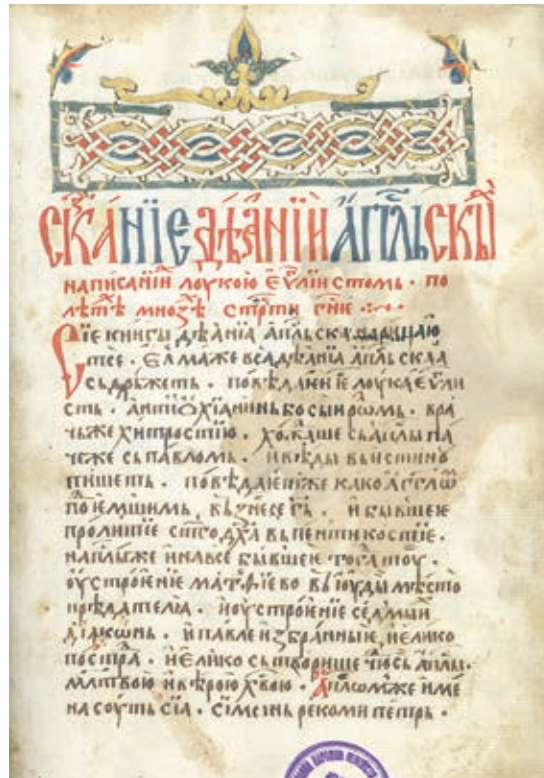 Сказанїе дѣанїй апⷭ҇льскыⷯ
написанїй лоукою еѵⷢ҇лїистомь · по
лѣтѣⷯ мноѕѣⷯ стрⷭ҇ти гнⷭ҇ѥ
Сїе книгы дѣанїа апⷭ҇льскаа нарицаю
тсе · ѥлмаже вса дѣанїа апⷭ҇льскаа
съдръжеть · повѣдаѥи же лоука еѵⷢ҇ли
сть · антїѡхїанинь бо сьи роѡмь · вра
чьже хитростїю · хождаше съ апⷭ҇лы па
чеже сь павломь · и вѣды вьистинно
пишеть · повѣдаѥтже како агг҃лѡⷨ
поѥмшимь, вьзнесе гь · и бывшеѥ
пролитїе ст҃го дх҃а вь пентикостїе ·
на апⷭ҇лыже и на все бывшеѥ тогⷣа тоу ·
оустроѥнїе матѳїево вь їоуды мѣсто
прѣдателıа · и оустроѥнїе седмый
дїакѡнь · и павле избранныѥ, и елико
построⷣа · и елико сьтворише чюⷣсь апⷭ҇лы ·
мл҃твою и вѣрою хв҃ою · Апⷭ҇лѡмже име
на соуть сїа · сїмѡнь рекоми петрь ·